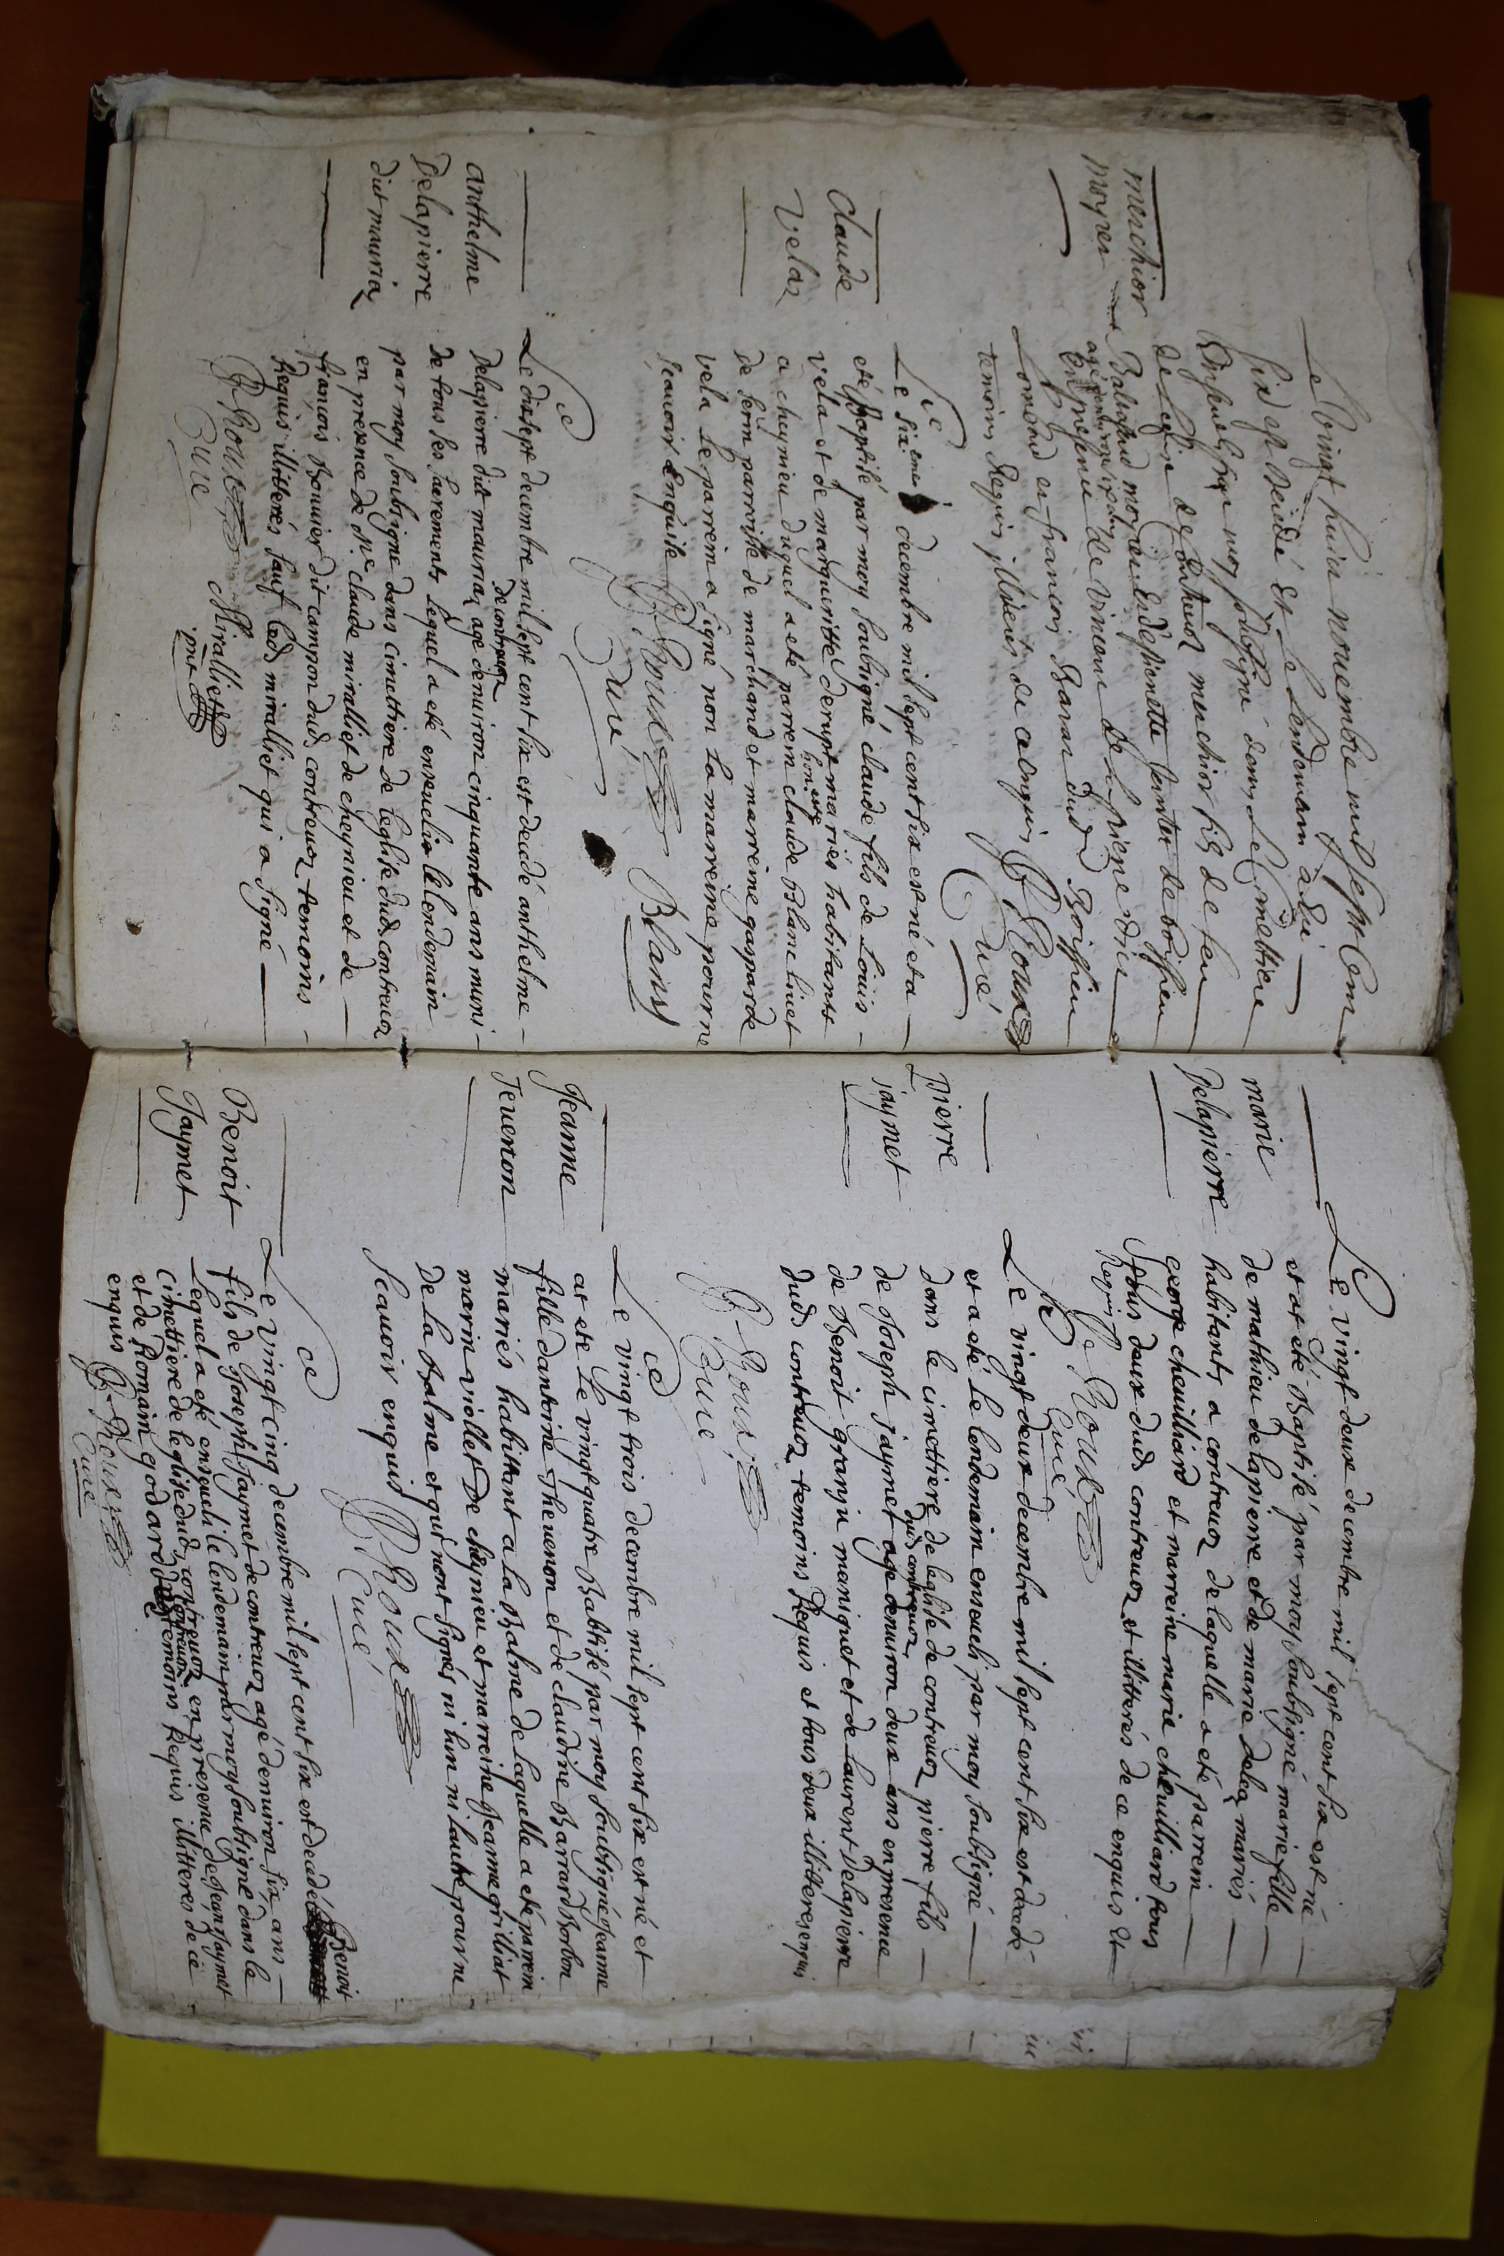 Le vingt huict novembre mil sept cent
six est decedé et le lendemain a été
par moy soubsigné dans le cimettiere
de leglise de contrevoz merchior fils de feu
Balthazard moyret
en presence de vincent delapierre dit
et francois Baran dud Boissieu
temoins Requis illiterés de ce enquis J Roux
Curé
merchior
moyret
Claude
Velaz
Le sixieme decembre mil sept cent six est né et a
eté Baptisé par moy soubsigné claude fils de Louis
vela et de margueritte derupt mariés habitants
a cheynieu duquel a eté parrein honneste claude Blanc livet
de serin parroisse de marchand et marreine gasparde
vela le parrein a signé non La marreine pour ne
scavoir Enquise J Roux Blanc
Curé
anthelme
Delapierre
dict mauriaz
Le disept decembre mil sept cent six est decedé anthelme
Delapierre dit mauriaz de contrevoz agé denviron cinquante ans muni
de tous les sacrements lequel a eté enseveli le lendemain
par moy soubsigné dans cimettiere de leglise dud contrevoz
en presence de Me claude miralliet de cheynieu et de
francois Bouvier dit campon dud contrevoz temoins
Requis illiterés sauf led miralliet qui a signé
J Roux Miralliet
Curé pnt
marie
Delapierre
Le vingt deux decembre mil sept cent six est né
et at eté Baptisé par moy soubsigné marie fille
de mathieu delapierre et de marie velaz mariés
habitants a contrevoz de laquelle a eté parrein
george cheuilliard et marreine marie cheuilliard tous
tous deux dud contrevoz et illiterés de ce enquis et
Requis J Roux
Curé
Pierre
jaymet
Le vingt deux decembre mil sept cent six est decedé
et a eté le lendemain enseveli par moy soubsigné
dans le cimettiere de leglise de contrevoz pierre fils
de Joseph jaymet dud contrevoz agé denviron deux ans en presence
de Benoit granju maniquet et de Laurent delapierre
dud contrevoz temoins Requis et tous deux illiteres enquis
J Roux
Curé
Jeanne
Tevenon
Le vingt trois decembre mil sept cent six est né et
at eté Le vingt quatre Babtisé par moy soubsigné Jeanne
fille dantoine Thevenon et de claudine Barrard Borbon
mariés habittant a la Balme de laquelle a eté parrein
marin viollet De cheynieu et marreine Jeanne grilliat
De La Balme et qui nont signés ni lun ni lautre pour ne
scavoir enquis J Roux
Curé
Benoit
Jaymet
Le vingt cinq decembre mil sept cent six est decedé Benoit
fils de Joseph Jaymet de contrevoz agé denviron six ans
Lequel a eté enseveli le lendemain par moy soubsigné dans le
cimettiere de leglise dud contrevoz en presence de Jean Jaymet
et de Romain godard dud contrevoz temoins Requis illitteres de ce
enquis J Roux
Curé